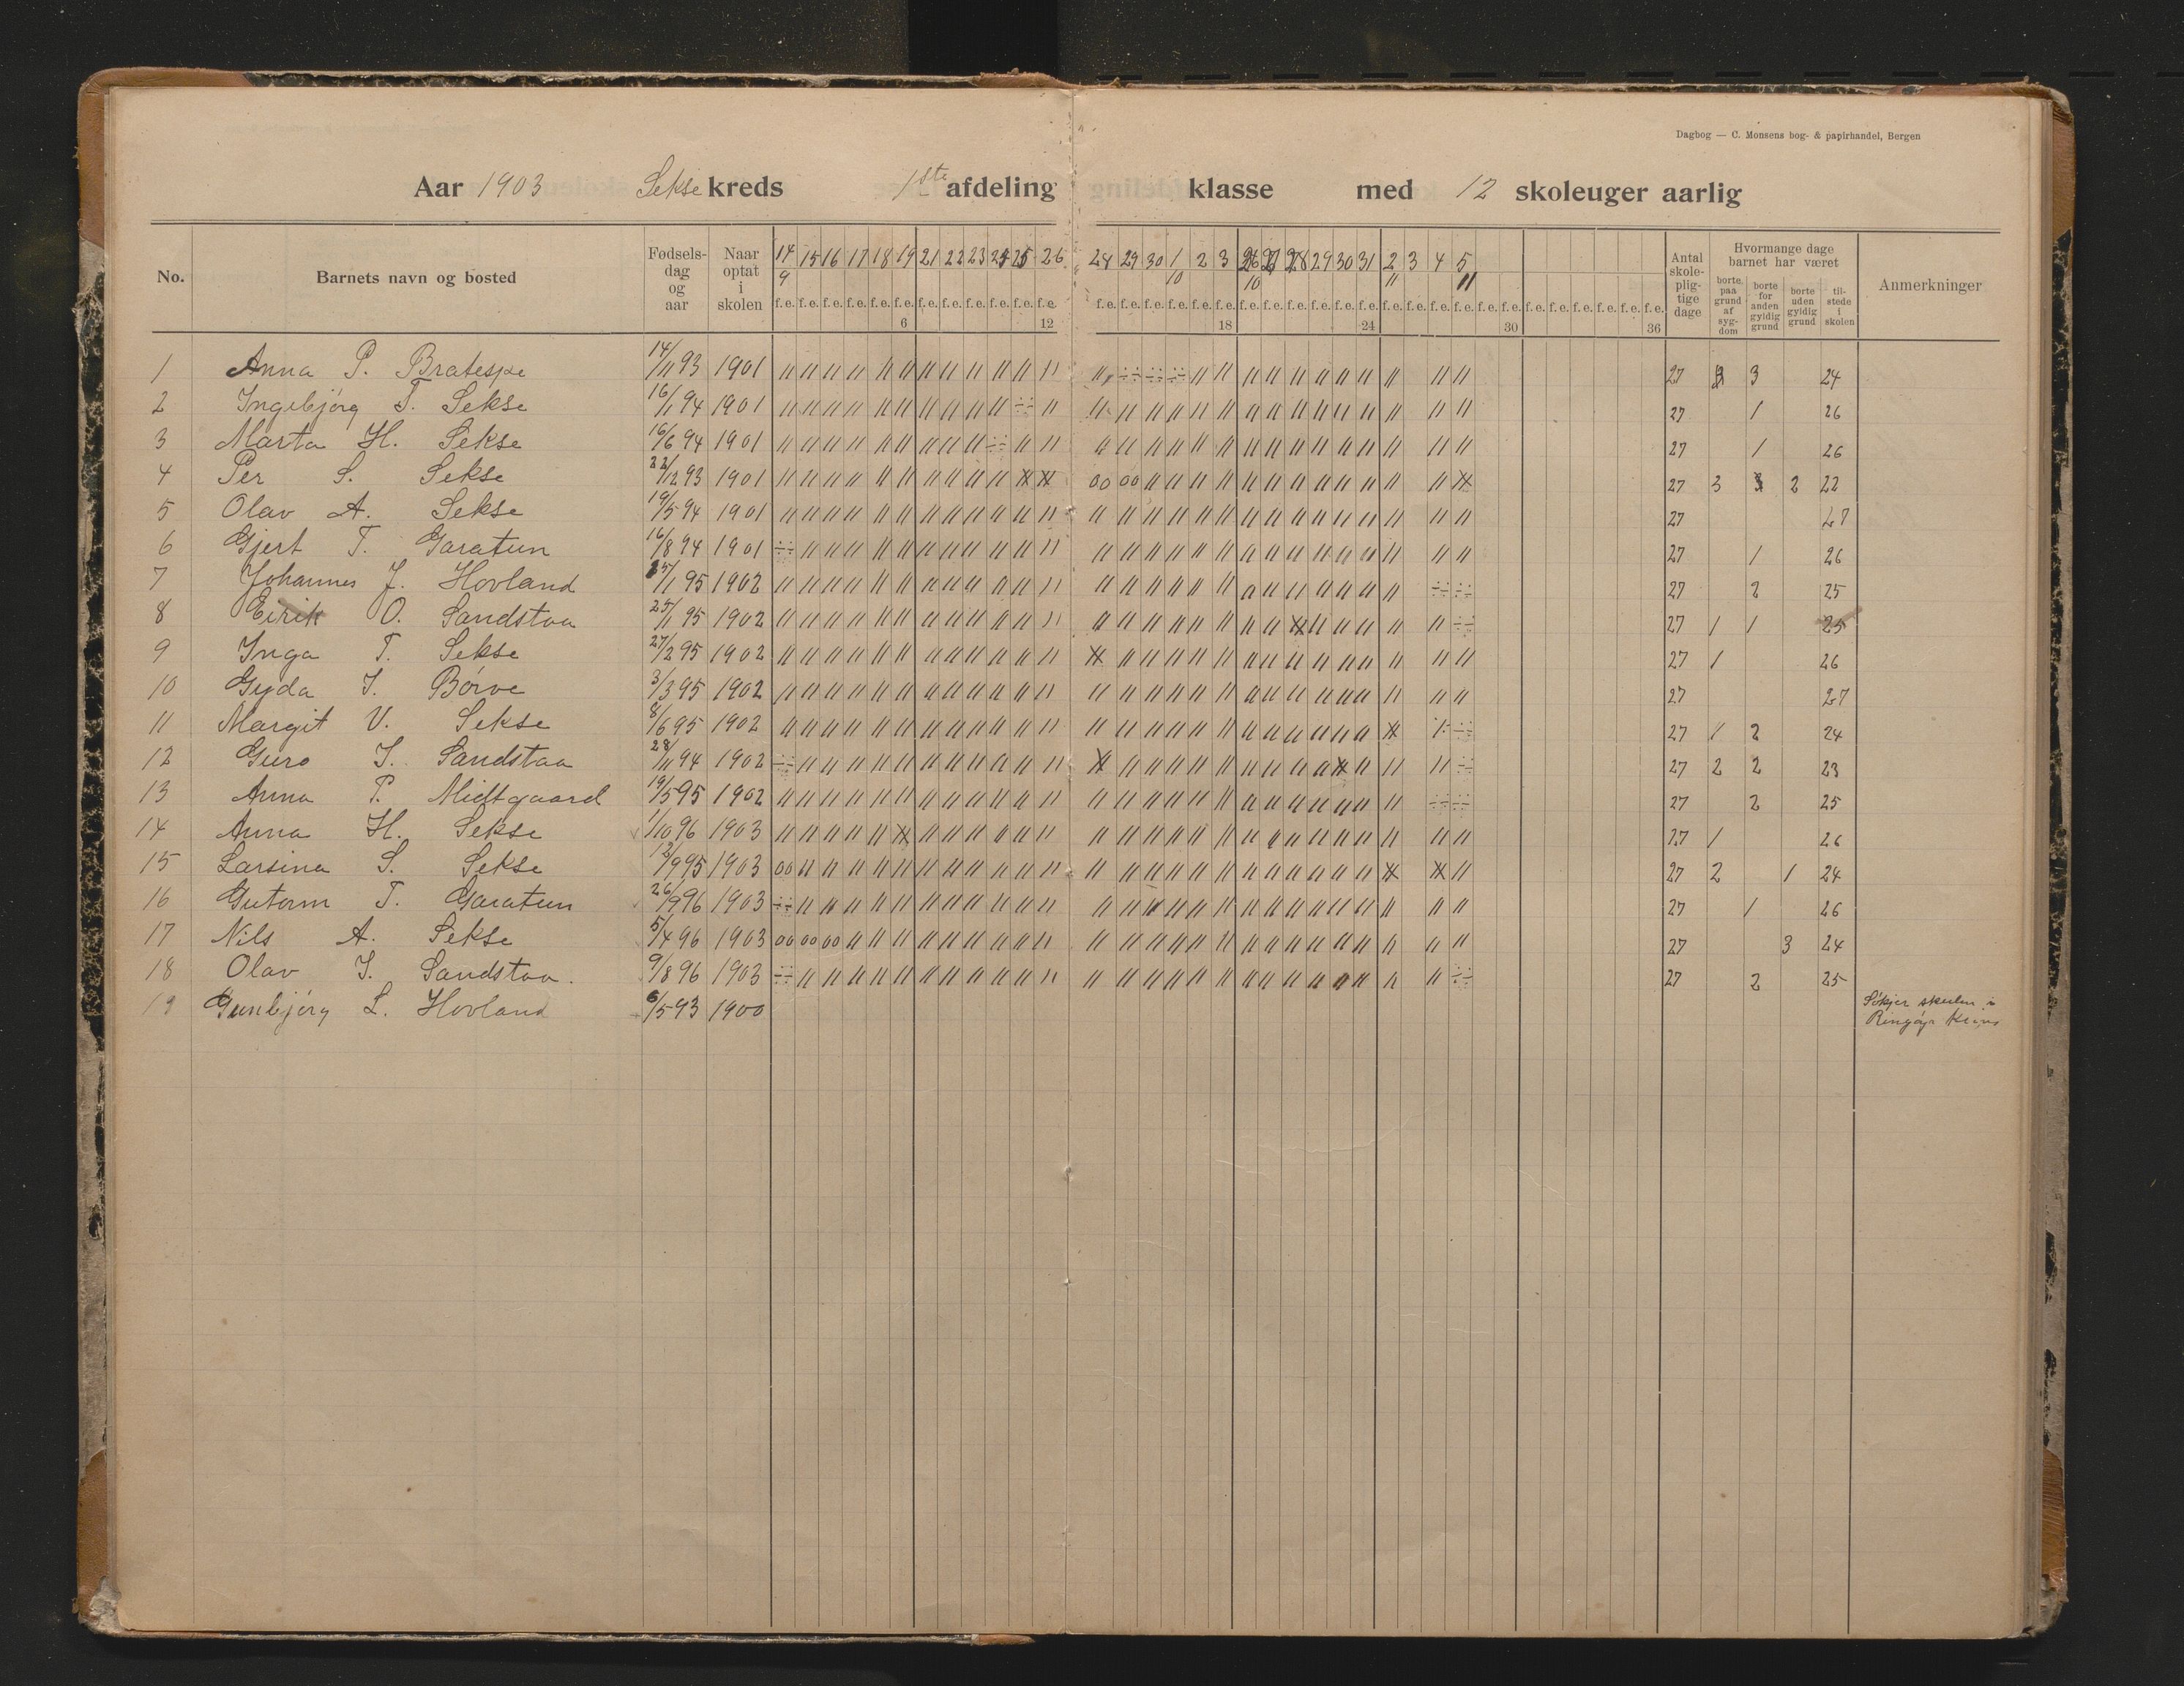 Dagbog — C. Monsens bog- & papirhandel, Bergen
Aar 1903 Sekse kreds 1ste afdeling klasse med 12 skoleuger aarlig
No. Barnets navn og bosted Fødsels-dag og aar Naar optat i skolen 14 15 16 17 18 19 21 22 23 24 25 26 28 29 30 1 2 3 26 27 28 29 30 31 2 3 4 5 Antal skole-plig-tige dage Hvormange dage barnet har været Anmerkninger
9 10 10 11 11
borte paa grund af syg-dom borte for anden gyldig grund borte uden gyldig grund til-stede i skolen
f.e. f.e. f.e. f.e. f.e. f.e. f.e. f.e. f.e. f.e. f.e. f.e. f.e. f.e. f.e. f.e. f.e. f.e. f.e. f.e. f.e. f.e. f.e. f.e. f.e. f.e. f.e. f.e. f.e. f.e. f.e. f.e. f.e. f.e. f.e. f.e.
6 12 18 24 30 36
1 Anna P. Bratespe 14/11 93 1901 27 3 24
2 Ingebjörg T. Sekse 16/1 94 1901 27 1 26
3 Marta H. Sekse 16/6 94 1901 27 1 26
4 Per S. Sekse 22/12 93 1901 27 3 2 22
5 Olav A. Sekse 19/5 94 1901 27 27
6 Gjert T. Garatun 16/8 94 1901 27 1 26
7 Johannes J. Hovland 95 1902 27 2 25
8 Eirik O. Sandstaa 25/1 95 1902 27 1 1 25
9 Inga T. Sekse 27/2 95 1902 27 1 26
10 Gyda I. Börve 3/3 95 1902 27 27
11 Margit V. Sekse 8/6 95 1902 27 1 2 24
12 Guro I. Sandstaa 28/11 94 1902 27 2 2 23
13 Anna P. Midtgaard 19/5 95 1902 27 2 25
14 Anna H. Sekse 1/10 96 1903 27 1 26
15 Larsina S. Sekse 12/9 95 1903 27 2 1 24
16 Gutorm T. Garatun 26/9 96 1903 27 1 26
17 Nils A. Sekse 5/4 96 1903 27 3 24
18 Olav I. Sandstaa. 9/8 96 1903 27 2 25
19 Gunbjörg L. Hovland 6/5 93 1900 Sökjer skulen i
Ringöy Krins